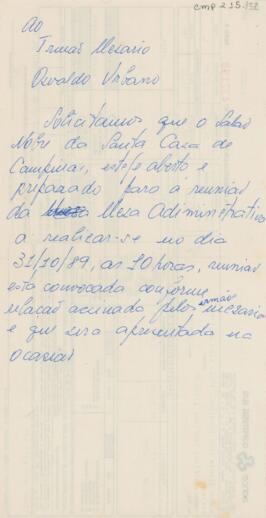 cmp 2.15.
Ao
Irmão Mesario
Osvaldo Urbano
Solicitamos que o Salão
Nobre da Santa Casa de
Campinas, esteje aberto e
preparado para a reunião
da Mesa Administrativa
a realizar-se no dia
31/10/89, as 10 horas, reunião
esta convocada conforme
relação acinada pelos irmãos mezarios
e que sera apresentada na
ocasião